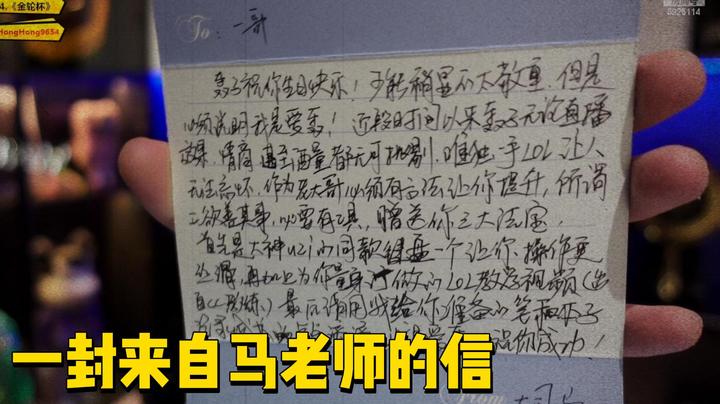 4.《金轮杯》
HongHong9654
8925114
To: 一哥
轰子祝你生日快乐！可能稍显不太敬重，但是
必须说明我是爱轰！近段时间以来轰子无论直播
效果、情商甚至酒量都无可挑剔，唯独一手LOL让人
无法忘怀，作为老大哥必须有办法让你提升，所谓
工欲善其事，必要有工具，赠送你三大法宝。
首先是大神uzi的同款键盘一个让你操作更
丝滑，再加上为你量身订做的LOL教学视频(出
自 最后请用我给你准备的
祝你成功！
From
一封来自马老师的信